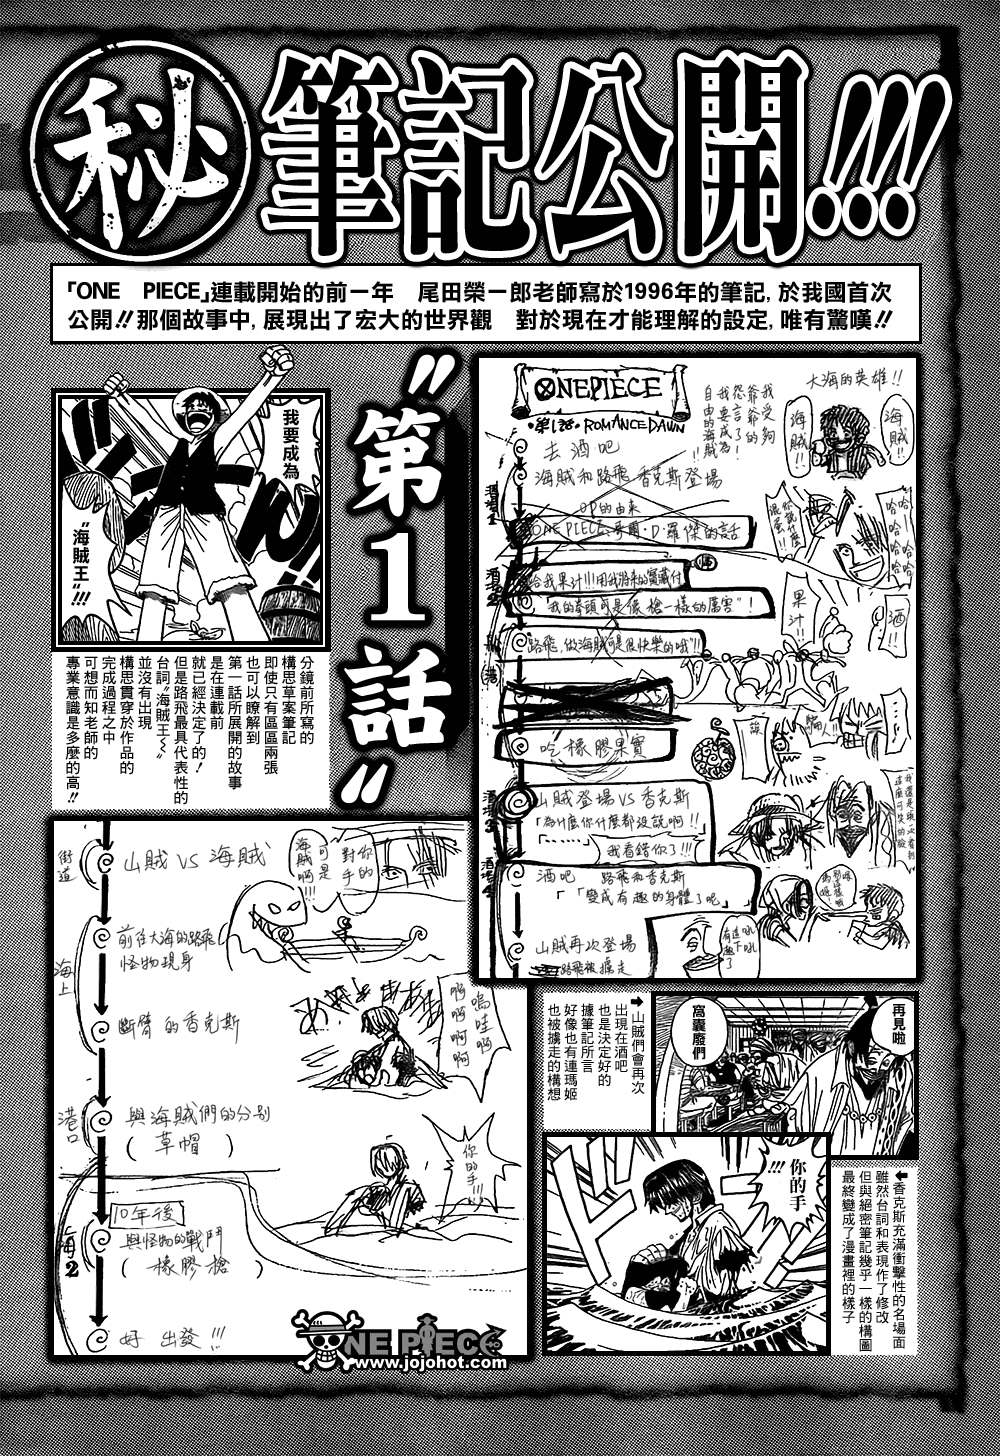 秘 筆記公開!!!
「ONE PIECE」連載開始的前一年 尾田榮一郎老師寫於1996年的筆記, 於我國首次
公開!! 那個故事中, 展現出了宏大的世界觀 對於現在才能理解的設定, 唯有驚嘆!!
"第1話"
我要成為
"海賊王"!!!
分鏡前所寫的
構思草案筆記
即使只有區區兩張
也可以瞭解到
第一話所展開的故事
是在連載前
就已經決定了的!
但是路飛最具代表性的
台詞"海賊王~"
並沒有出現
構思貫穿於作品的
完成過程之中
可想而知老師的
專業意識是多麼的高!!
ONE PIECE
第1話 • ROMANCE DAWN
大海的英雄!!
海賊!!
海賊!!
我受夠
爺爺的
怨言了
我要成為
自由的海賊!!
去酒吧
海賊和路飛 香克斯登場
酒場1
OP的由來
ONE PIECE 哥爾·D·羅傑的話
哈哈哈哈
給我果汁!!!用我將來的寶藏付
酒場2
"我的拳頭可是像槍一樣的厲害"!
果汁!!
酒!!
路飛,做海賊可是很快樂的哦!!
(港)
吃橡膠果實
騙人!!
山賊登場 VS 香克斯
酒場3
「為什麼你什麼都沒說啊!!
「……」
我看錯你了!!!
酒場4
酒吧 路飛和香克斯
「變成有趣的身體了呢」
山賊再次登場
路飛被擄走
街道
山賊 VS 海賊
海賊可是啊!!!
對你手的
前往大海的路飛
怪物現身
海上
斷臂的香克斯
嗚哇啊
啊啊啊啊
港口
與海賊們的分別
(草帽)
你的手!!!
10年後
與怪物的戰鬥
(橡膠槍)
海2
好 出發!!!
ONE PIECE
www.jojohot.com
再見啦
窩囊廢們
➡山賊們會再次
出現在酒吧
也是決定好的
據筆記所言
好像也有連瑪姬
也被擄走的構想
你的手
!!!
⬅香克斯充滿衝擊性的名場面
雖然台詞和表現作了修改
但與絕密筆記幾乎一樣的構圖
最終變成了漫畫裡的樣子